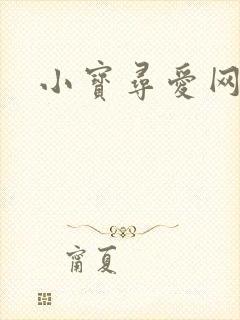 小寳尋愛网
甯夏